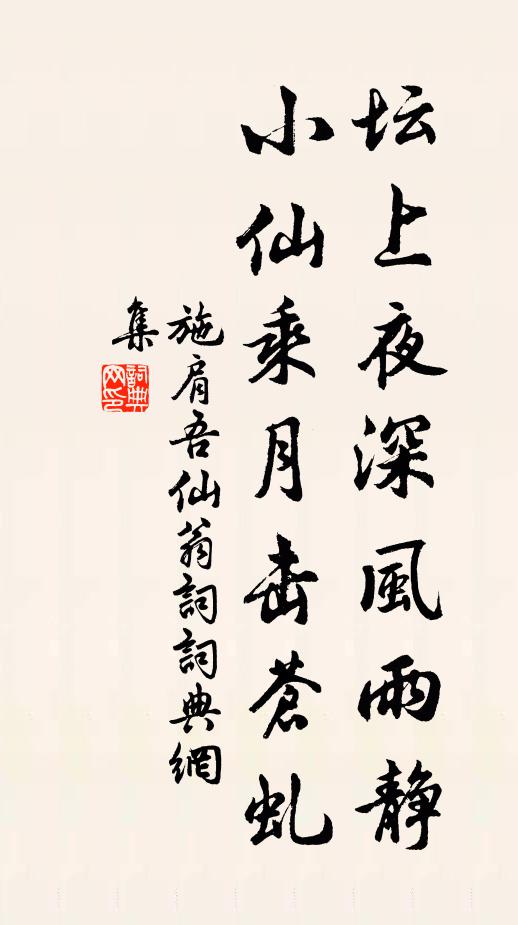 坛上夜深風雨静
小仙乘月击蒼虬
施肩吾仙翁詞詞典網
集
詞典
网印